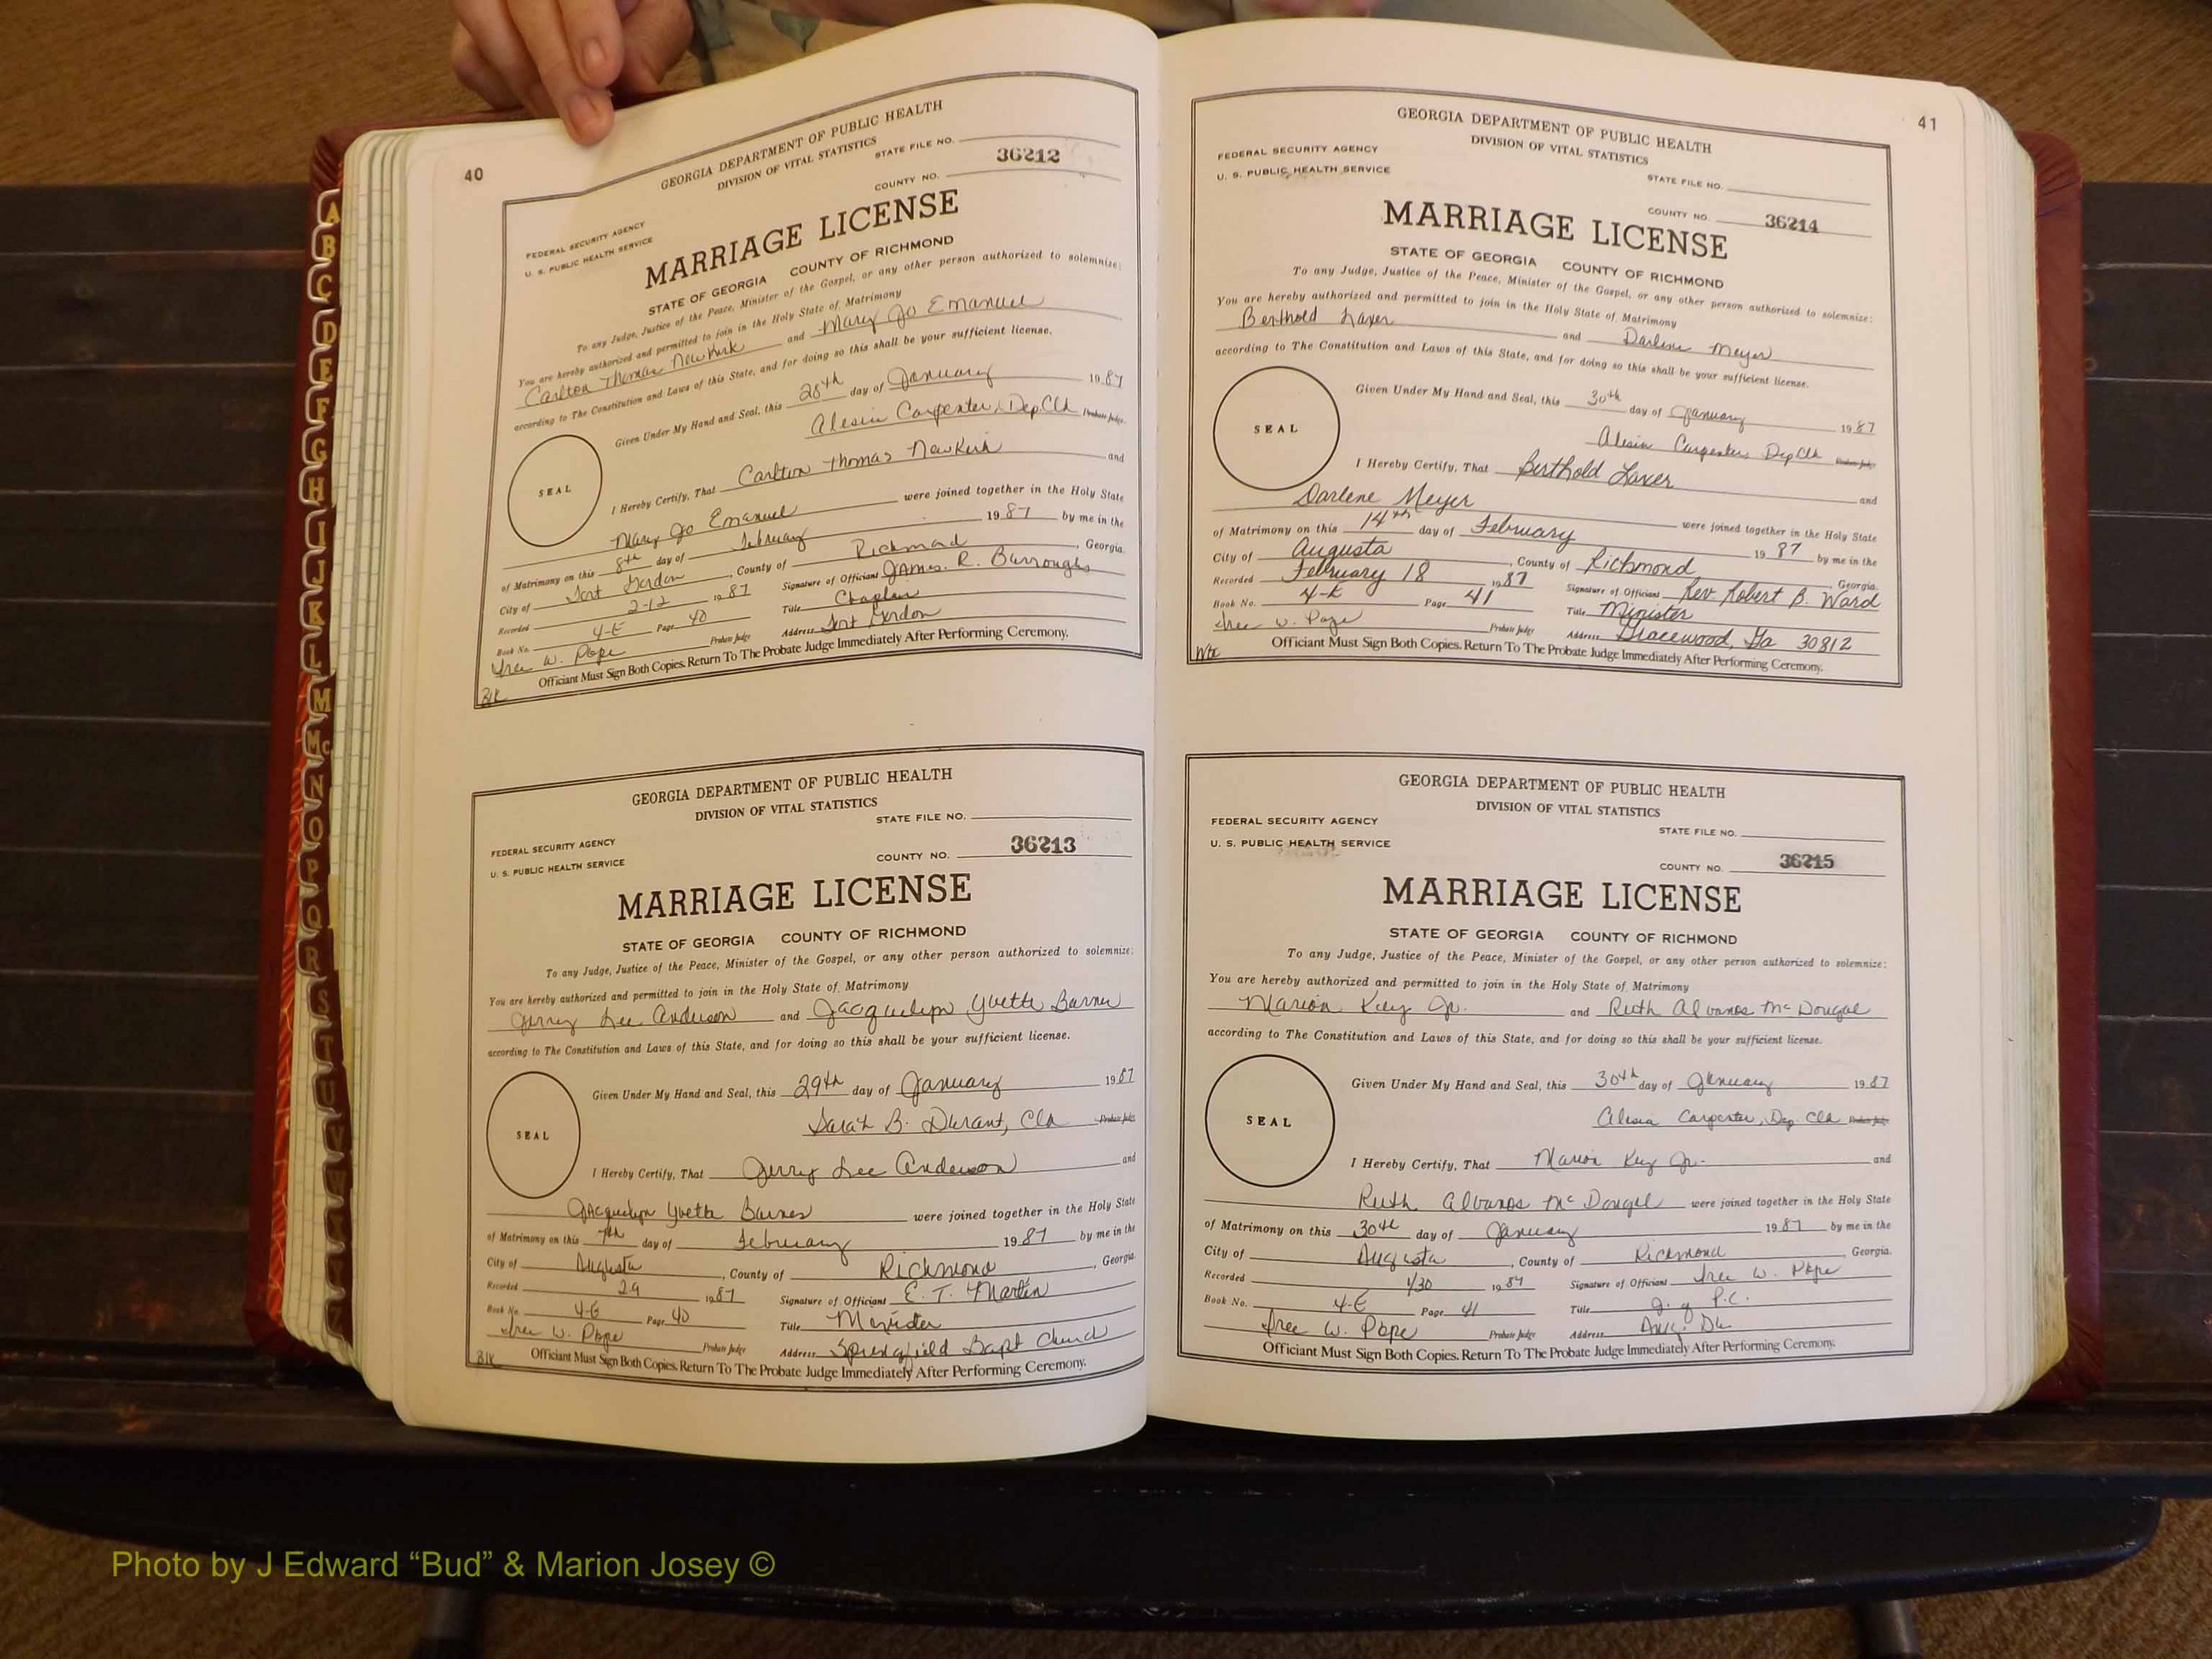 40
GEORGIA DEPARTMENT OF PUBLIC HEALTH
DIVISION OF VITAL STATISTICS
STATE FILE NO.
36212
COUNTY NO.
FEDERAL SECURITY AGENCY
U. S. PUBLIC HEALTH SERVICE
MARRIAGE LICENSE
STATE OF GEORGIA COUNTY OF RICHMOND
To any Judge, Justice of the Peace, Minister of the Gospel, or any other person authorized to solemnize:
You are hereby authorized and permitted to join in the Holy State of Matrimony
Carlton Thomas Newkirk and Mary Jo Emanuel
according to The Constitution and Laws of this State, and for doing so this shall be your sufficient license.
Given Under My Hand and Seal, this 28th day of January 1987
Alesia Carpenter, Dep Clk Probate Judge
SEAL
I Hereby Certify, That Carlton Thomas Newkirk and
Mary Jo Emanuel were joined together in the Holy State
of Matrimony on this 8th day of February 1987 by me in the
City of Fort Gordon, County of Richmond, Georgia.
Recorded 2-12 1987 Signature of Officiant James. R. Burroughs
Book No. 4-E Page 40 Title Chaplain
Iree W. Pope Probate Judge Address Fort Gordon
Officiant Must Sign Both Copies. Return To The Probate Judge Immediately After Performing Ceremony.
GEORGIA DEPARTMENT OF PUBLIC HEALTH
DIVISION OF VITAL STATISTICS
STATE FILE NO.
FEDERAL SECURITY AGENCY
U. S. PUBLIC HEALTH SERVICE
COUNTY NO. 36213
MARRIAGE LICENSE
STATE OF GEORGIA COUNTY OF RICHMOND
To any Judge, Justice of the Peace, Minister of the Gospel, or any other person authorized to solemnize:
You are hereby authorized and permitted to join in the Holy State of Matrimony
Jerry Lee Anderson and Jacquelyn Yvette Barnes
according to The Constitution and Laws of this State, and for doing so this shall be your sufficient license.
Given Under My Hand and Seal, this 29th day of January 1987
Sarah B. Durant, Clk Probate Judge
SEAL
I Hereby Certify, That Jerry Lee Anderson and
Jacquelyn Yvette Barnes were joined together in the Holy State
of Matrimony on this 7th day of February 1987 by me in the
City of Augusta, County of Richmond, Georgia.
Recorded 2-9 1987 Signature of Officiant E. T. Martin
Book No. 4-E Page 40 Title Minister
Iree W. Pope Probate Judge Address Springfield Bapt Church
Officiant Must Sign Both Copies. Return To The Probate Judge Immediately After Performing Ceremony.
41
GEORGIA DEPARTMENT OF PUBLIC HEALTH
DIVISION OF VITAL STATISTICS
FEDERAL SECURITY AGENCY
U. S. PUBLIC HEALTH SERVICE
STATE FILE NO.
COUNTY NO. 36214
MARRIAGE LICENSE
STATE OF GEORGIA COUNTY OF RICHMOND
To any Judge, Justice of the Peace, Minister of the Gospel, or any other person authorized to solemnize:
You are hereby authorized and permitted to join in the Holy State of Matrimony
Berthold Laver and Darlene Meyer
according to The Constitution and Laws of this State, and for doing so this shall be your sufficient license.
Given Under My Hand and Seal, this 30th day of January 1987
Alesia Carpenter, Dep Clk Probate Judge
SEAL
I Hereby Certify, That Berthold Laver and
Darlene Meyer were joined together in the Holy State
of Matrimony on this 14th day of February 1987 by me in the
City of Augusta, County of Richmond, Georgia.
Recorded February 18 1987 Signature of Officiant Rev. Robert B. Ward
Book No. 4-E Page 41 Title Minister
Iree W. Pope Probate Judge Address Gracewood, Ga 30812
Officiant Must Sign Both Copies. Return To The Probate Judge Immediately After Performing Ceremony.
GEORGIA DEPARTMENT OF PUBLIC HEALTH
DIVISION OF VITAL STATISTICS
FEDERAL SECURITY AGENCY
U. S. PUBLIC HEALTH SERVICE
STATE FILE NO.
COUNTY NO. 36215
MARRIAGE LICENSE
STATE OF GEORGIA COUNTY OF RICHMOND
To any Judge, Justice of the Peace, Minister of the Gospel, or any other person authorized to solemnize:
You are hereby authorized and permitted to join in the Holy State of Matrimony
Marion Key Jr. and Ruth Alvanos McDougal
according to The Constitution and Laws of this State, and for doing so this shall be your sufficient license.
Given Under My Hand and Seal, this 30th day of January 1987
Alesia Carpenter, Dep. Clk Probate Judge
SEAL
I Hereby Certify, That Marion Key Jr. and
Ruth Alvanos McDougal were joined together in the Holy State
of Matrimony on this 30th day of January 1987 by me in the
City of Augusta, County of Richmond, Georgia.
Recorded 1/30 1987 Signature of Officiant Iree W. Pope
Book No. 4-E Page 41 Title J. of P.C.
Iree W. Pope Probate Judge Address
Officiant Must Sign Both Copies. Return To The Probate Judge Immediately After Performing Ceremony.
A
B
C
D
E
F
G
H
I
J
K
L
M
Mc
N
O
P
Q
R
S
T
U
V
Photo by J Edward “Bud” & Marion Josey ©